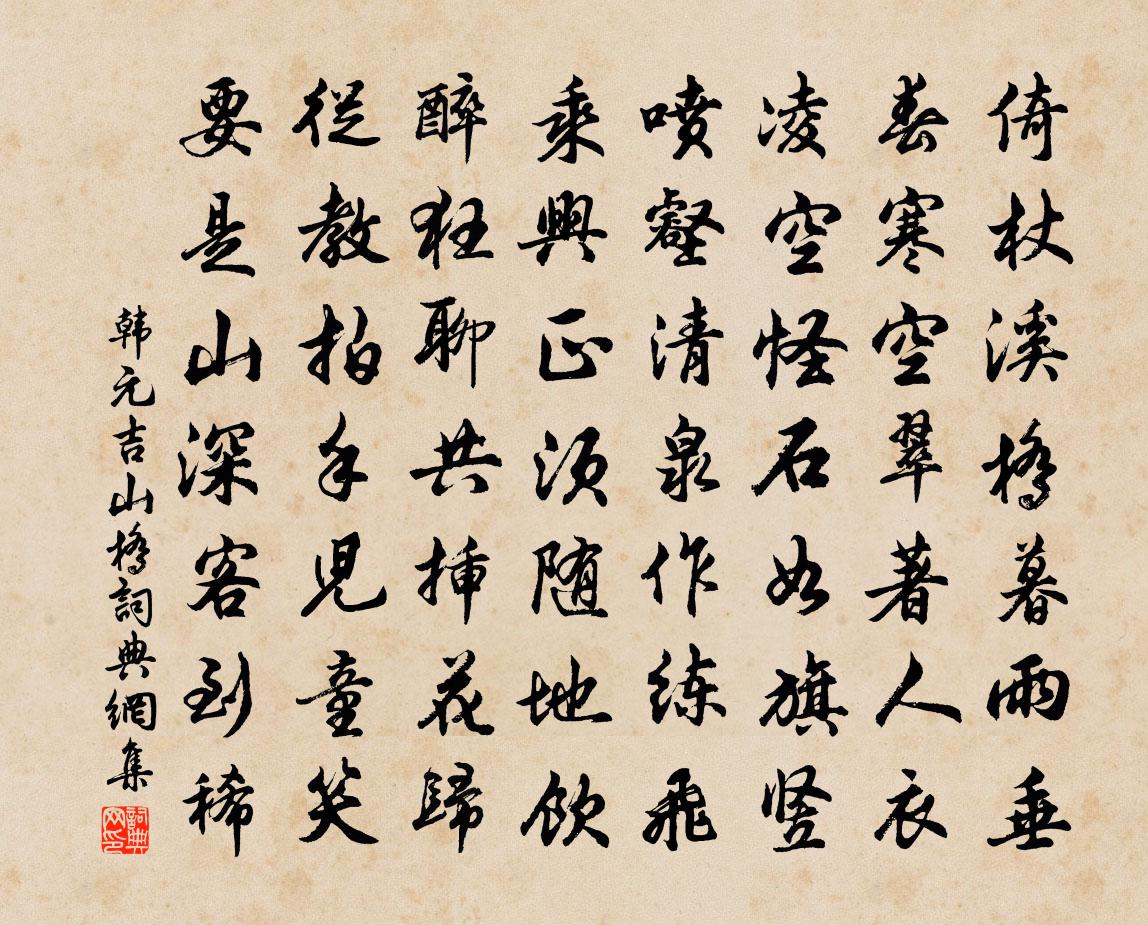 倚杖溪橋暮雨垂
春寒空翠著人衣
凌空怪石如旗竖
噴壑清泉作练飛
乘興正須随地飲
醉狂聊共揷花歸
從教拍手兒童笑
要是山深客到稀
韩元吉山橋詞典網集
詞典网印